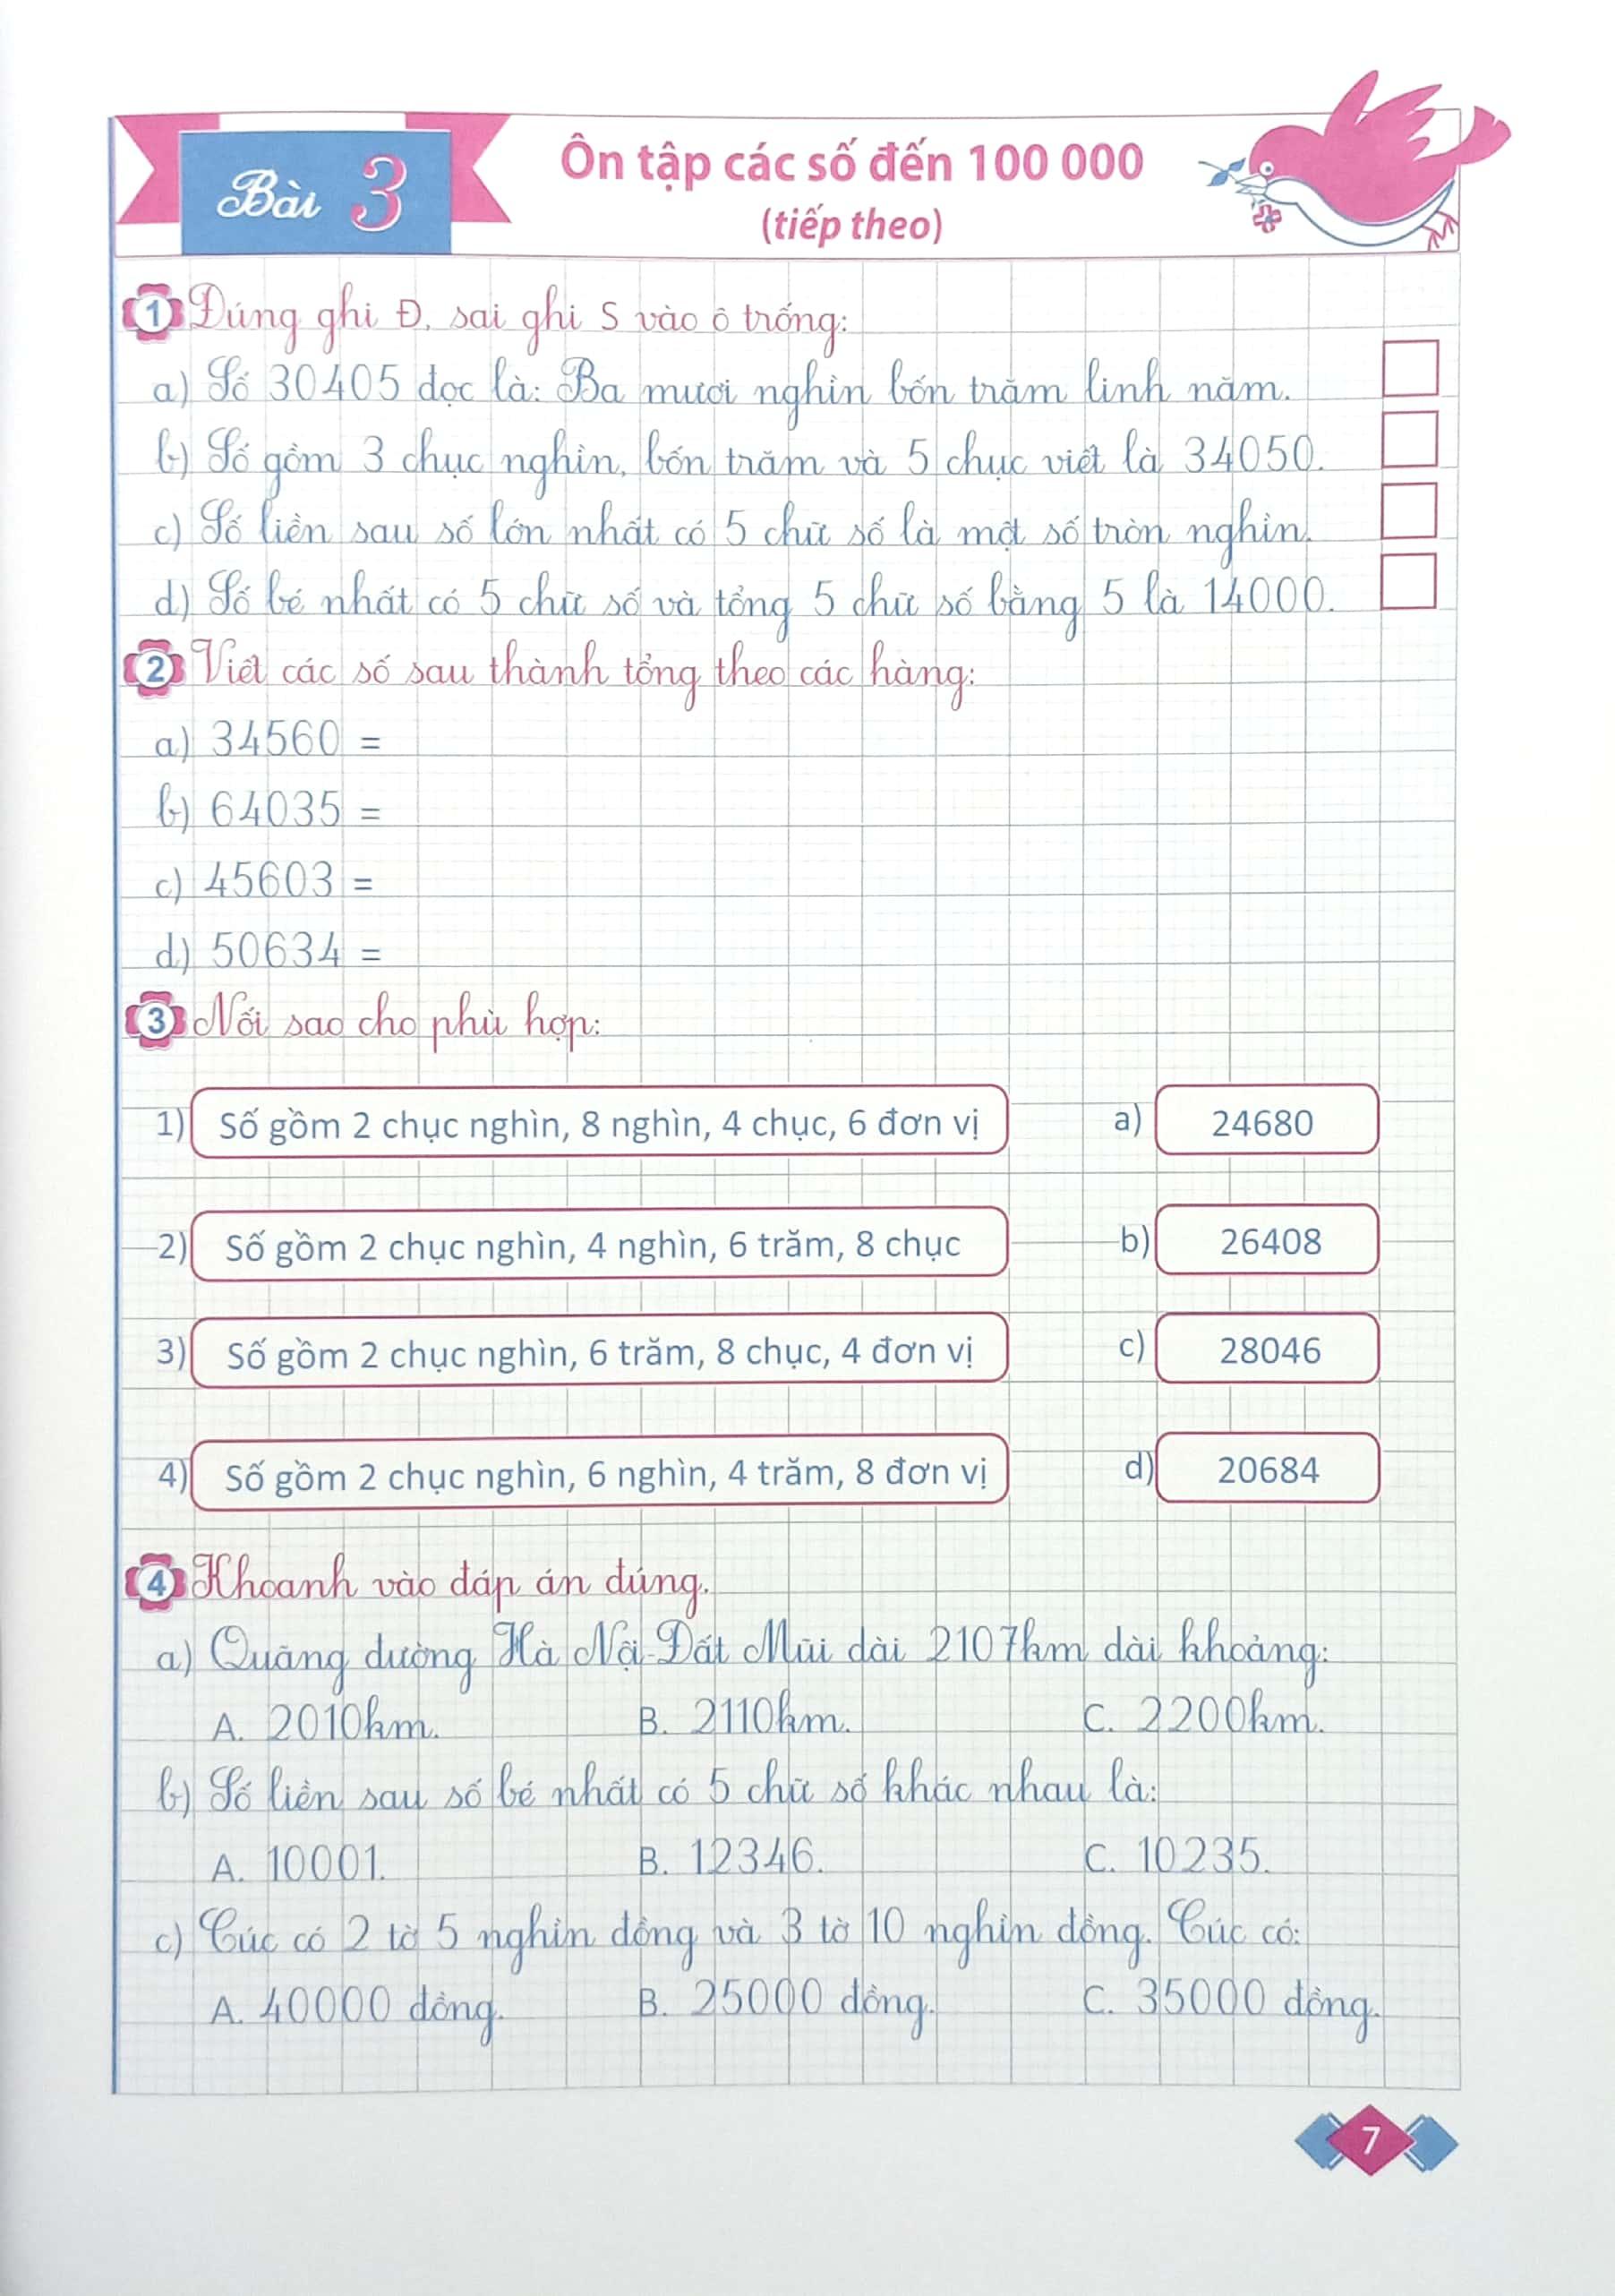 Bài 3
Ôn tập các số đến 100 000
(tiếp theo)
1 Đúng ghi Đ, sai ghi S vào ô trống:
a) Số 30405 đọc là: Ba mươi nghìn bốn trăm linh năm.
b) Số gồm 3 chục nghìn, bốn trăm và 5 chục viết là 34050.
c) Số liền sau số lớn nhất có 5 chữ số là một số tròn nghìn.
d) Số bé nhất có 5 chữ số và tổng 5 chữ số bằng 5 là 14000.
2 Viết các số sau thành tổng theo các hàng:
a) 34560 =
b) 64035 =
c) 45603 =
d) 50634 =
3 Nối sao cho phù hợp:
1) Số gồm 2 chục nghìn, 8 nghìn, 4 chục, 6 đơn vị a) 24680
2) Số gồm 2 chục nghìn, 4 nghìn, 6 trăm, 8 chục b) 26408
3) Số gồm 2 chục nghìn, 6 trăm, 8 chục, 4 đơn vị c) 28046
4) Số gồm 2 chục nghìn, 6 nghìn, 4 trăm, 8 đơn vị d) 20684
4 Khoanh vào đáp án đúng.
a) Quãng đường Hà Nội-Đất Mũi dài 2107km dài khoảng:
A. 2010km. B. 2110km. C. 2200km.
b) Số liền sau số bé nhất có 5 chữ số khác nhau là:
A. 10001. B. 12346. C. 10235.
c) Cúc có 2 tờ 5 nghìn đồng và 3 tờ 10 nghìn đồng. Cúc có:
A. 40000 đồng. B. 25000 đồng. C. 35000 đồng.
7